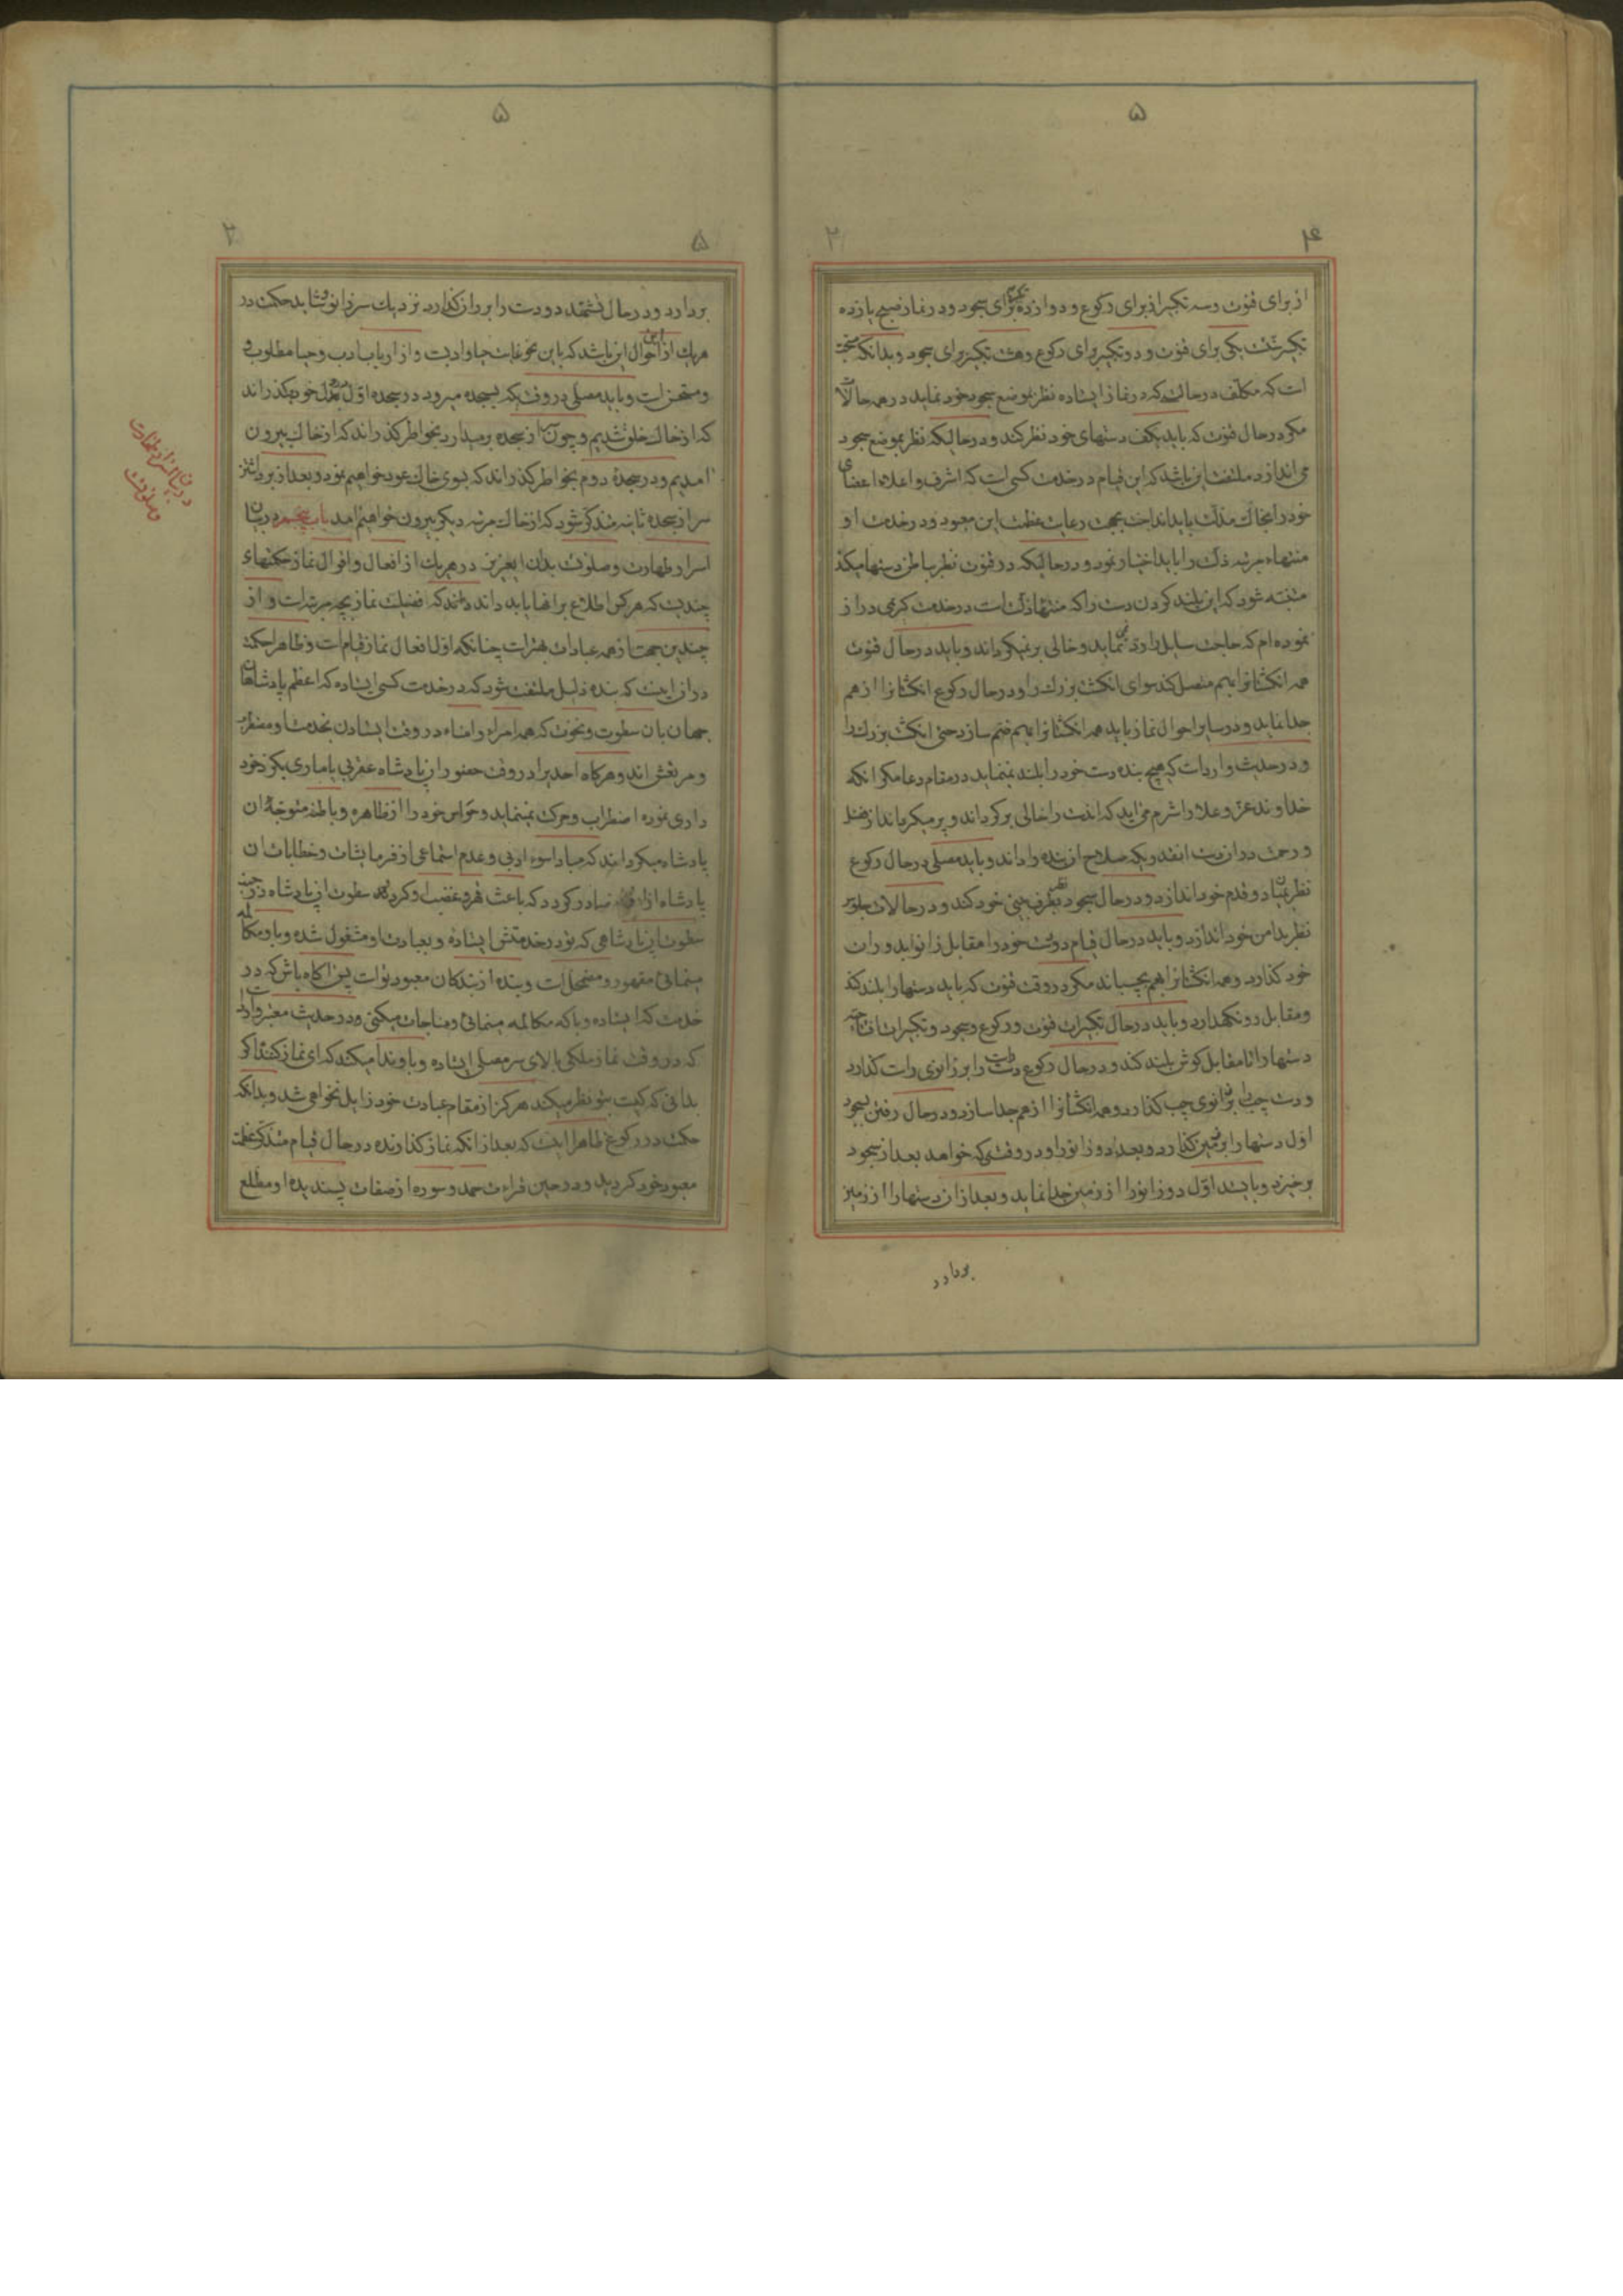 ۵
۴
۲
از برای قنوت و سه تکبیر از برای رکوع و دوازده تکبیر برای سجود و در نماز صبح یازده
تکبیرست یکی برای قنوت و دو تکبیر برای رکوع و هشت تکبیر برای سجود و بدانکه سنت
است که مکلف در حالت که در نماز ایستاده نظر بموضع سجود خود نماید در همه حالات
مگر در حال قنوت که باید بکف دستهای خود نظر کند و در حالیکه نظر بموضع سجود
می اندازد ملتفت این باشد که این قیام در خدمت کسی است که اشرف و اعلاء اعضای
خود را بخاک مذلت باید انداخت بجهت رعایت عظمت این معبود و در خدمت او
منتهاء مرتبه ذلت را باید اختیار نمود و در حالیکه در قنوت نظر بباطن دستها میکند
متنبه شود که این بلند کردن دست را که منتهاء ذلت است در خدمت کریمی دراز
نموده ام که حاجت سایل را رد نمی نماید و خالی بر نمیگرداند و باید در حال قنوت
همه انگشتانرا بهم متصل کند سوای انگشت بزرگ را و در حال رکوع انگشتانرا از هم
جدا نماید و در سایر احوال نماز باید همه انگشتانرا بهم منضم سازد حتی انگشت بزرگ را
و در حدیث وارد است که هیچ بنده دست خود را بلند نمینماید در مقام دعا مگر آنکه
خداوند عز و علا را شرم می آید که اندست را خالی برگرداند و پر میگرداند از فضل
و رحمت در آن دست انقدریکه صلاح آن بنده را داند و باید مصلی در حال رکوع
نظر بمیان دو قدم خود اندازد و در حال سجود نظر بطرف بینی خود کند و در حالات جلوس
نظر بدامن خود اندازد و باید در حال قیام دو دست خود را مقابل زانو بدو ران
خود گذارد و همه انگشتانرا بهم بچسباند مگر در وقت قنوت که باید دستها را بلند کند
و مقابل رو نگهدارد و باید در حال تکبیران قنوت و رکوع و سجود و تکبیرات افتتاحیه
دستها را تا مقابل گوش بلند کند و در حال رکوع دست راست را بر زانوی راست گذارد
و دست چپ را بر زانوی چپ گذارد و همه انگشتانرا از هم جدا سازد و در حال رفتن بسجود
اول دستها را بر زمین گذارد و بعد از دو زانو را و در وقتیکه خواهد بعد از سجود
برخیزد و بایست اول دو زانو را از زمین جدا نماید و بعد از آن دستها را از زمین
بردارد
۵
۵
۲
بردارد و در حال تشهد دو دست را بر ران گذارد نزدیک سر زانو و شاید حکمت در
هریک از این احوال این باشد که باین نحو غایت حیا و ادبست و از ارباب ادب و حیا مطلوب
و مستحسن است و باید مصلی در وقتیکه بسجده میرود در سجده اول بدل خود بگذراند
که از خاک خلق شدیم و چون از سجده برمیدارد بخواطر گذراند که از خاک بیرون
آمدیم و در سجدهٔ دوم بخواطر گذراند که بسوی خاک عود خواهیم نمود و بعد از برداشتن
سر از سجده ثانیه متذکر شود که از خاک مرتبه دیگر بیرون خواهیم آمد باب پنجم در بیان
اسرار طهارت و صلوت بدان ایعزیز در هریک از افعال و اقوال نماز حکمتهای
چندیست که هر کس اطلاع بر انها یابد داند که فضیلت نماز بچه مرتبه است و از
چندین جهت از همه عبادات بهتر است چنانکه اول افعال نماز قیام است و ظاهر حکمت
در آن اینست که بنده ذلیل ملتفت شود که در خدمت کسی ایستاده که اعظم پادشاهان
جهان بان سطوت و نخوت که همه امراء و امناء در وقت ایستادن بخدمت او مضطرب
و مرتعش اند و هرگاه احدیرا در وقت حضور آن پادشاه عقربی یا ماری بگزد خود
داری نموده اضطراب و حرکت نمینماید و حواس خود را از ظاهره و باطنه متوجه آن
پادشاه میگردانند که مبادا سوء ادبی و عدم استماعی از فرمایشات و خطابات آن
پادشاه از او صادر گردد که باعث قهر و غضب او گردد سطوت آن پادشاه در جنب
سطوت این پادشاهی که تو در خدمتش ایستاده و بعبادت او مشغول شده و با او مکالمه
مینمائی مقهور و مضمحل است و بنده از بندگان معبود تو است پس آگاه باش که در
خدمت که ایستاده و با که مکالمه مینمائی و مناجات میکنی و در حدیث معتبر وارد است
که در وقت نماز ملکی بالای سر مصلی ایستاده و باو ندا میکند که ای نماز کننده اگر
بدانی که کیست بتو نظر میکند هرگز از مقام عبادت خود زایل نخواهی شد و بدانکه
حکمت در رکوع ظاهرا اینست که بعد از آنکه نماز گذارنده در حال قیام متذکر عظمت
معبود خود گردید و در حین قراءت حمد و سوره از صفات پسندیده او مطلع
در بیان اسرار طهارت
و صلوت